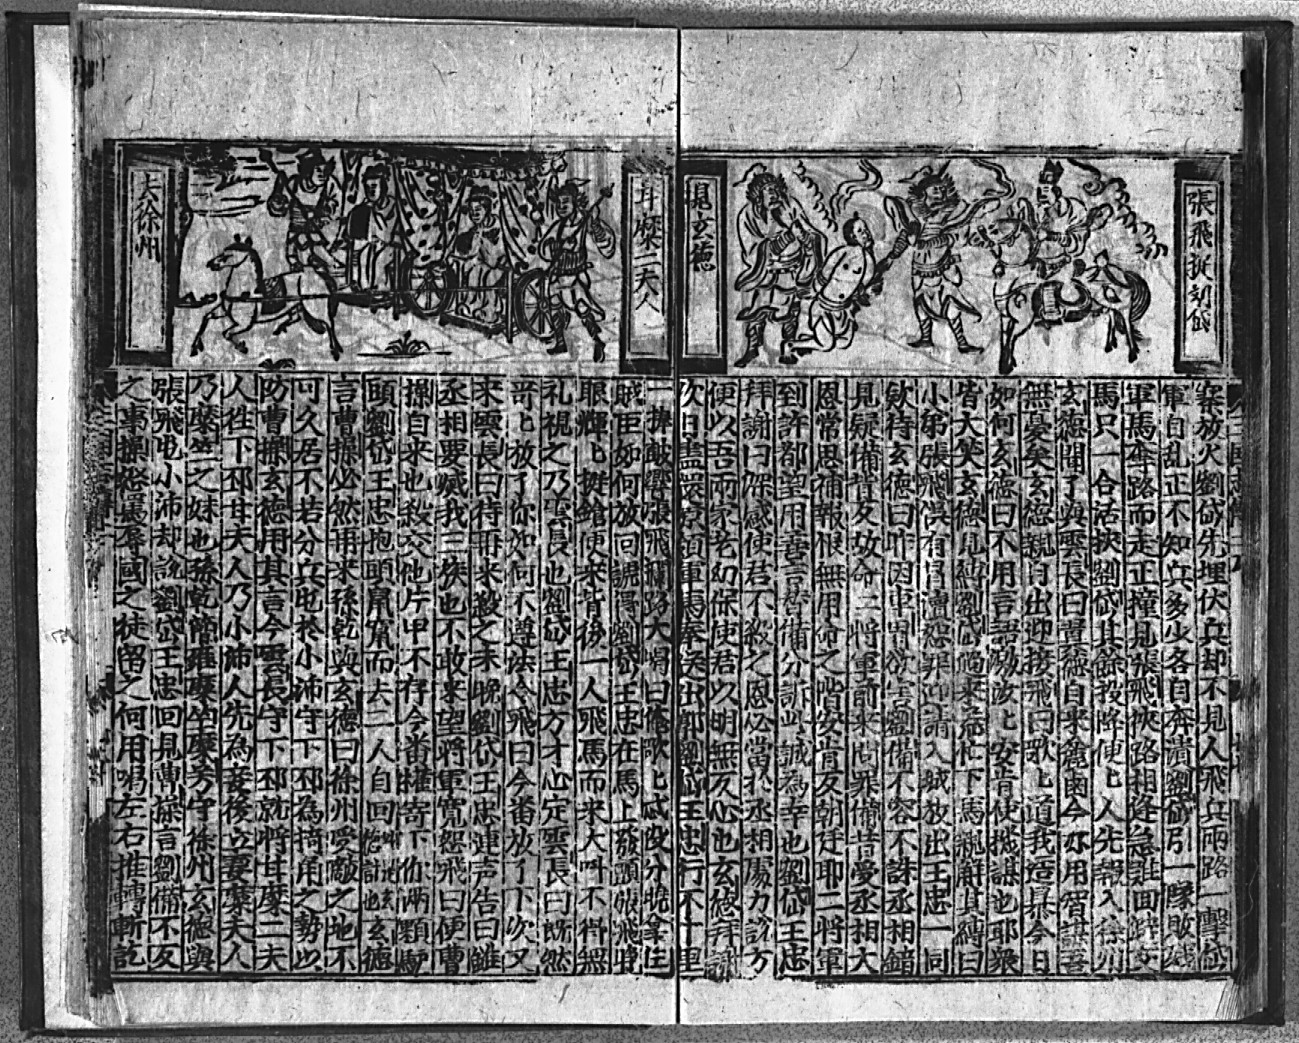 張飛捉刘岱
見玄德
寨放火劉岱先埋伏兵却不見人飛兵兩路一擊岱
軍自乱正不知兵多少各自奔潰劉岱引一隊敗殘
軍馬奪路而走正撞見張飛狹路相逢急難回避交
馬只一合活挾劉岱其餘投降便人先報入徐州
玄德聞了與雲長曰翼德自來麄鹵今亦用智謀吾
無憂矣玄德親自出迎接飛曰哥上道我造暴今日
如何玄德曰不用言語激汝上安肯使機謀也耶衆
皆大笑玄德見縛劉岱過來慌忙下馬親解其縛曰
小弟張飛悮有冒瀆恕罪迎請入城放出王忠一同
欵待玄德曰昨因車冑欲害劉備不容不誅丞相錯
見疑備背反故命二將軍前來問罪備昔受丞相大
恩常思補報恨無用命之階安肯反朝廷耶二將軍
到許都望用善言替備分訴此誠為幸也劉岱王忠
拜謝曰深感使君不殺之恩公當於丞相處力說方
便以吾兩家老幼保使君以明無反心也玄德拜謝
次日盡還原領軍馬奉送出郭劉岱王忠行不十里
甘糜二夫人
上徐州
一捧皷響張飛攔路大喝曰俺歌上忒沒分曉拿住
賊臣如何放回諕得劉岱王忠在馬上發顫張飛睜
眼輝上挺鎗便來背後一人飛馬而來大叫不得無
礼視之乃雲長也劉岱王忠方才心定雲長曰既然
哥上放了你如何不遵法令飛曰今番放了下次又
來雲長曰待再來殺之未晚劉岱王忠連声告曰雖
丞相要滅我三族也不敢來望將軍寬恕飛曰便曹
操自來也殺交他片甲不存今番權寄下你兩顆驢
頭劉岱王忠抱頭鼠竄而去二人自回玄德
言曹操必然再來孫乾與玄德曰徐州受敵之地不
可久居不若分兵屯於小沛守下邳為掎角之勢以
防曹操玄德用其言今雲長守下邳就將甘糜二夫
人徃下邳甘夫人乃小沛人先為妾後立妻糜夫人
乃糜竺之妹也孫乾簡雍糜竺糜芳守徐州玄德與
張飛屯小沛却說劉岱王忠回見曹操言劉備不反
之事操怒罵辱國之徒留之何用喝左右推轉斬訖